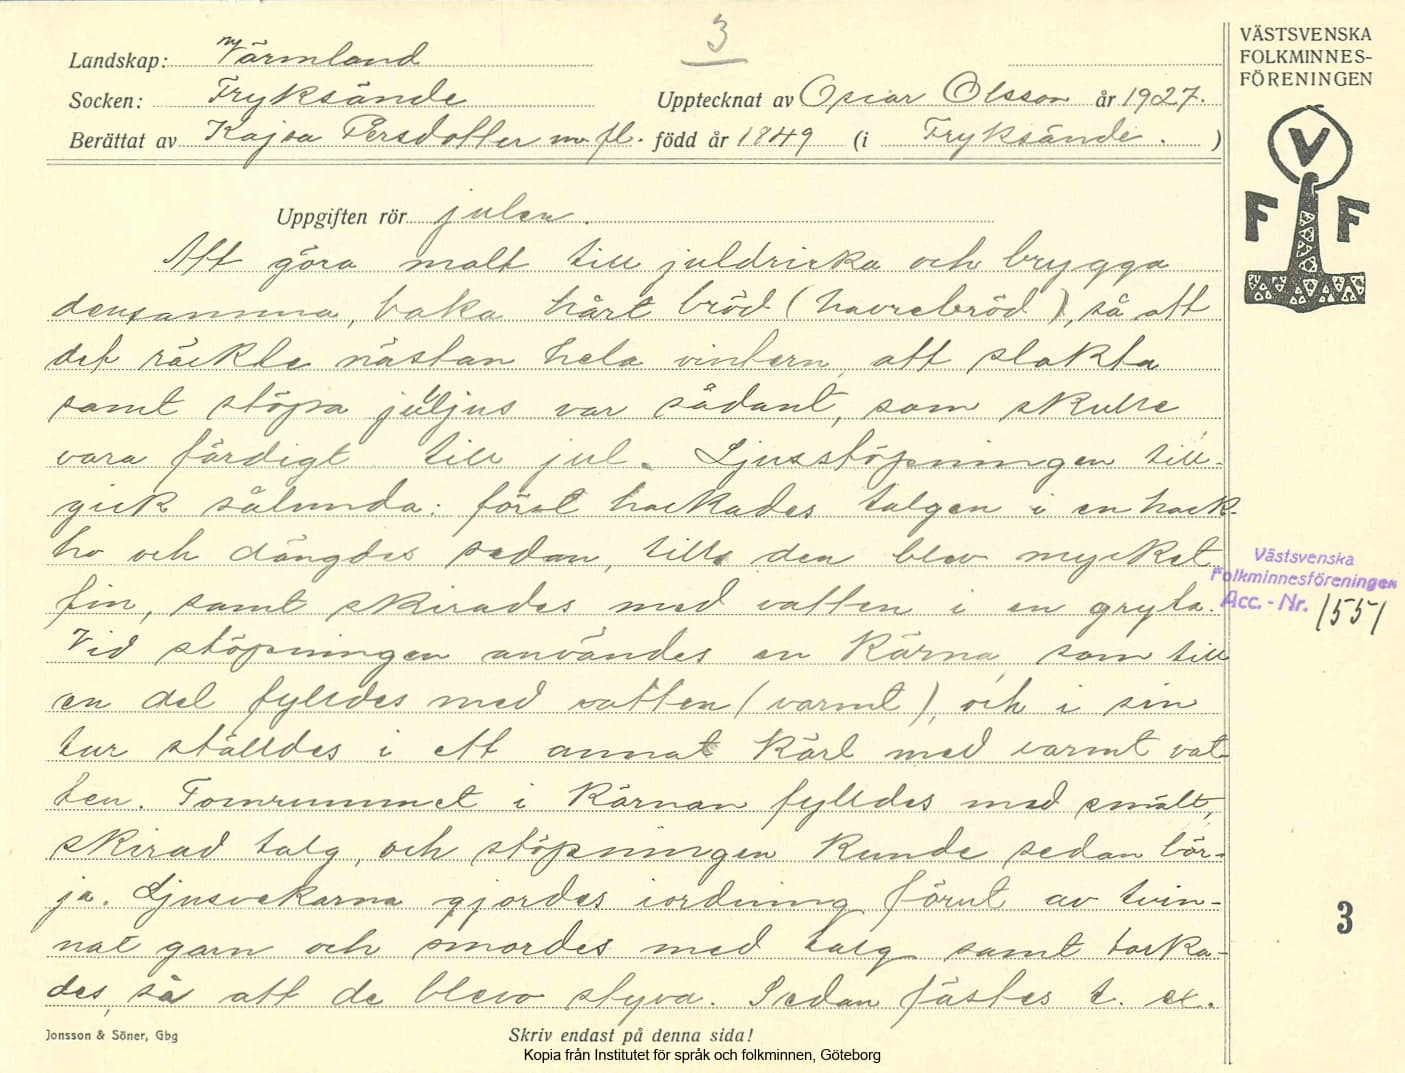 3
Landskap: Värmland
Socken: Fryksände
Upptecknat av Oscar Olsson år 1927.
Berättat av Kajsa Persdotter m. fl. född år 1849 (i Fryksände. )
VÄSTSVENSKA
FOLKMINNES-
FÖRENINGEN
V
F F
Uppgiften rör julen.
Att göra malt till juldricka och brygga
densamma, baka hårt bröd (havrebröd), så att
det räckte nästan hela vintern, att slakta
samt stöpa julljus var sådant, som skulle
vara färdigt till jul. Ljusstöpningen till-
gick sålunda: först hackades talgen i en hack-
ho och dängdes sedan, tills den blev mycket
fin, samt skirades med vatten i en gryta.
Vid stöpningen användes en kärna, som till
en del fylldes med vatten (varmt), och i sin
tur ställdes i ett annat kärl med varmt vat-
ten. Tomrummet i kärnan fylldes med smält,
skirad talg, och stöpningen kunde sedan bör-
ja. Ljusvekarna gjordes iordning förut av tvin-
nat garn och smordes med talg samt torka-
des, så att de blevo styva. Sedan fästes t. ex.
Västsvenska
Folkminnesföreningen
Acc. - Nr. 1551
3
Jonsson & Söner, Gbg
Skriv endast på denna sida!
Kopia från Institutet för språk och folkminnen, Göteborg